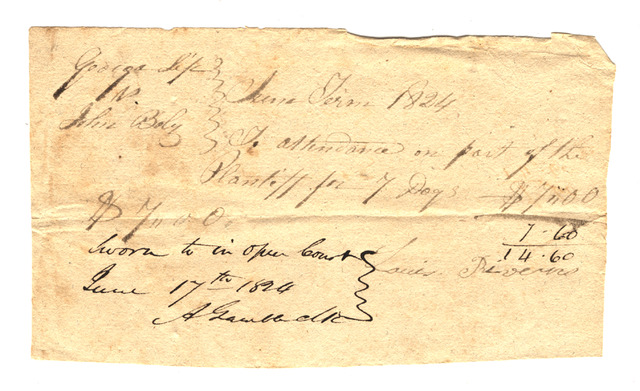 George
vs
John
June Term 1824
To attendance on part of the
Plantiff for 7 Days $7.00
$7.00.
7.60
14.60
Sworn to in open Court
June 17th 1824
A Gamble Clk